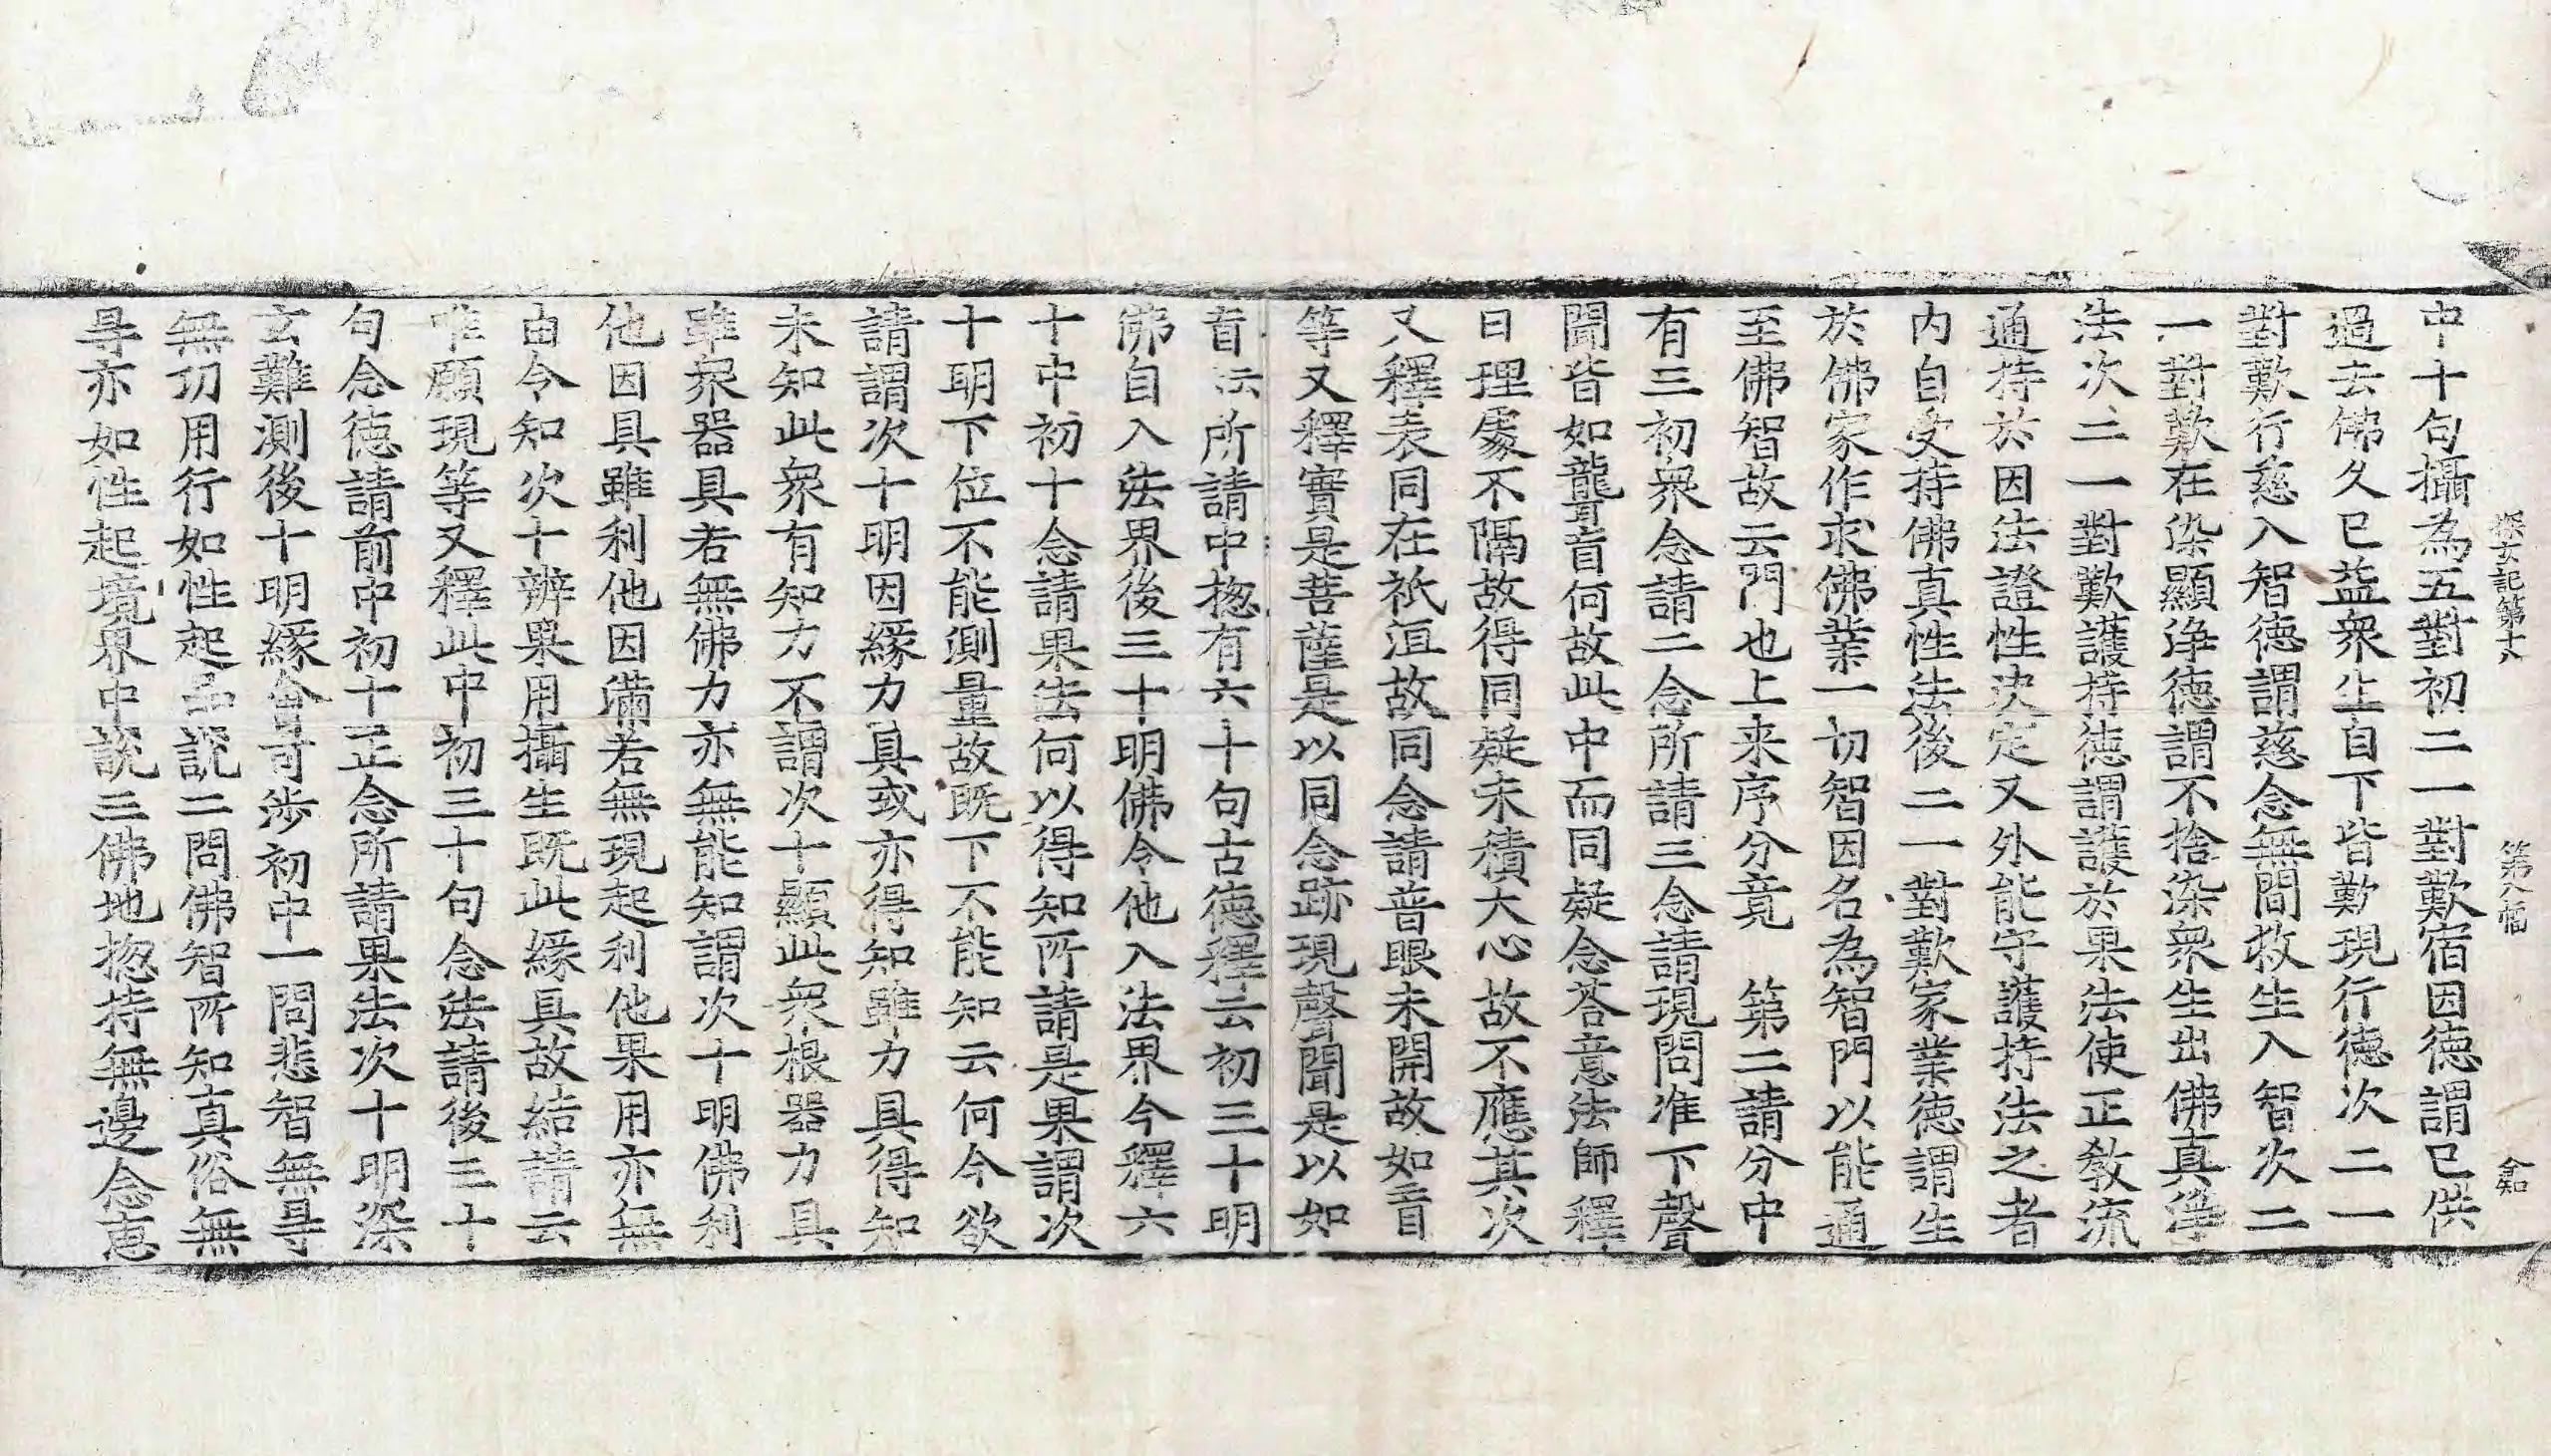 探玄記第十八 第八幅 仒知
中十句攝為五對初二一對歎宿因德謂已供
過去佛久已益衆生自下皆歎現行德次二一
對歎行慈入智德謂慈念無間救生入智次二
一對歎在染顯淨德謂不捨染衆生出佛真淨
法次二一對歎護持德謂護於果法使正教流
通持於因法證性決定又外能守護持法之者
內自受持佛真性法後二一對歎家業德謂生
於佛家作求佛業一切智因名為智門以能通
至佛智故云門也上来序分竟　第二請分中
有三初衆念請二念所請三念請現問准下聲
聞皆如聾盲何故此中而同疑念荅意法師釋
曰理處不隔故得同疑未積大心故不應其次
又釋表同在祇洹故同念請普眼未開故如盲
等又釋實是菩薩是以同念跡現聲聞是以如
盲 所請中揔有六十句古德釋云初三十明
佛自入法界後三十明佛令他入法界今釋六
十中初十念請果法何以得知所請是果謂次
十明下位不能測量故既下不能知云何今欲
請謂次十明因緣力具或亦得知雖力具得知
未知此衆有知力不謂次十顯此衆根器力具
雖衆器具者無佛力亦無能知謂次十明佛利
他因具雖利他因滿若無現起利他果用亦無
由令知次十辨果用攝生既此緣具故結請云
唯願現等又釋此中初三十句念法請後三十
句念德請前中初十正念所請果法次十明深
玄難測後十明緣會可涉初中一問悲智無㝵
無切用行如性起品說二問佛智所知真俗無
㝵亦如性起境界中說三佛地揔持無邊念恵